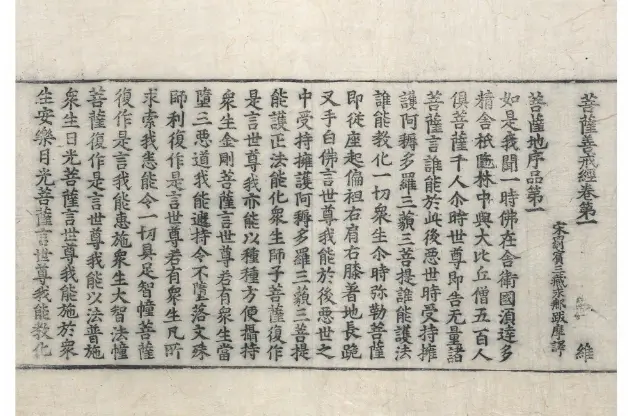 菩薩善戒經卷第一 維
宋罽賓三藏求那跋摩譯
菩薩地序品第一
如是我聞一時佛在舍衛國須達多
精舍祇陁林中與大比丘僧五百人
俱菩薩千人尒時世尊即告无量諸
菩薩言誰能於此後惡世時受持擁
護阿耨多羅三藐三菩提誰能護法
誰能教化一切衆生尒時弥勒菩薩
即從座起偏袒右肩右膝著地長跪
叉手白佛言世尊我能於後惡世之
中受持擁護阿耨多羅三藐三菩提
能護正法能化衆生師子菩薩復作
是言世尊我亦能以種種方便攝持
衆生金剛菩薩言世尊若有衆生當
墮三惡道我能遮持令不墮落文殊
師利復作是言世尊若有衆生凡所
求索我悉能令一切具足智幢菩薩
復作是言我能惠施衆生大智法幢
菩薩復作是言世尊我能以法普施
衆生日光菩薩言世尊我能施於衆
生安樂月光菩薩言世尊我能教化